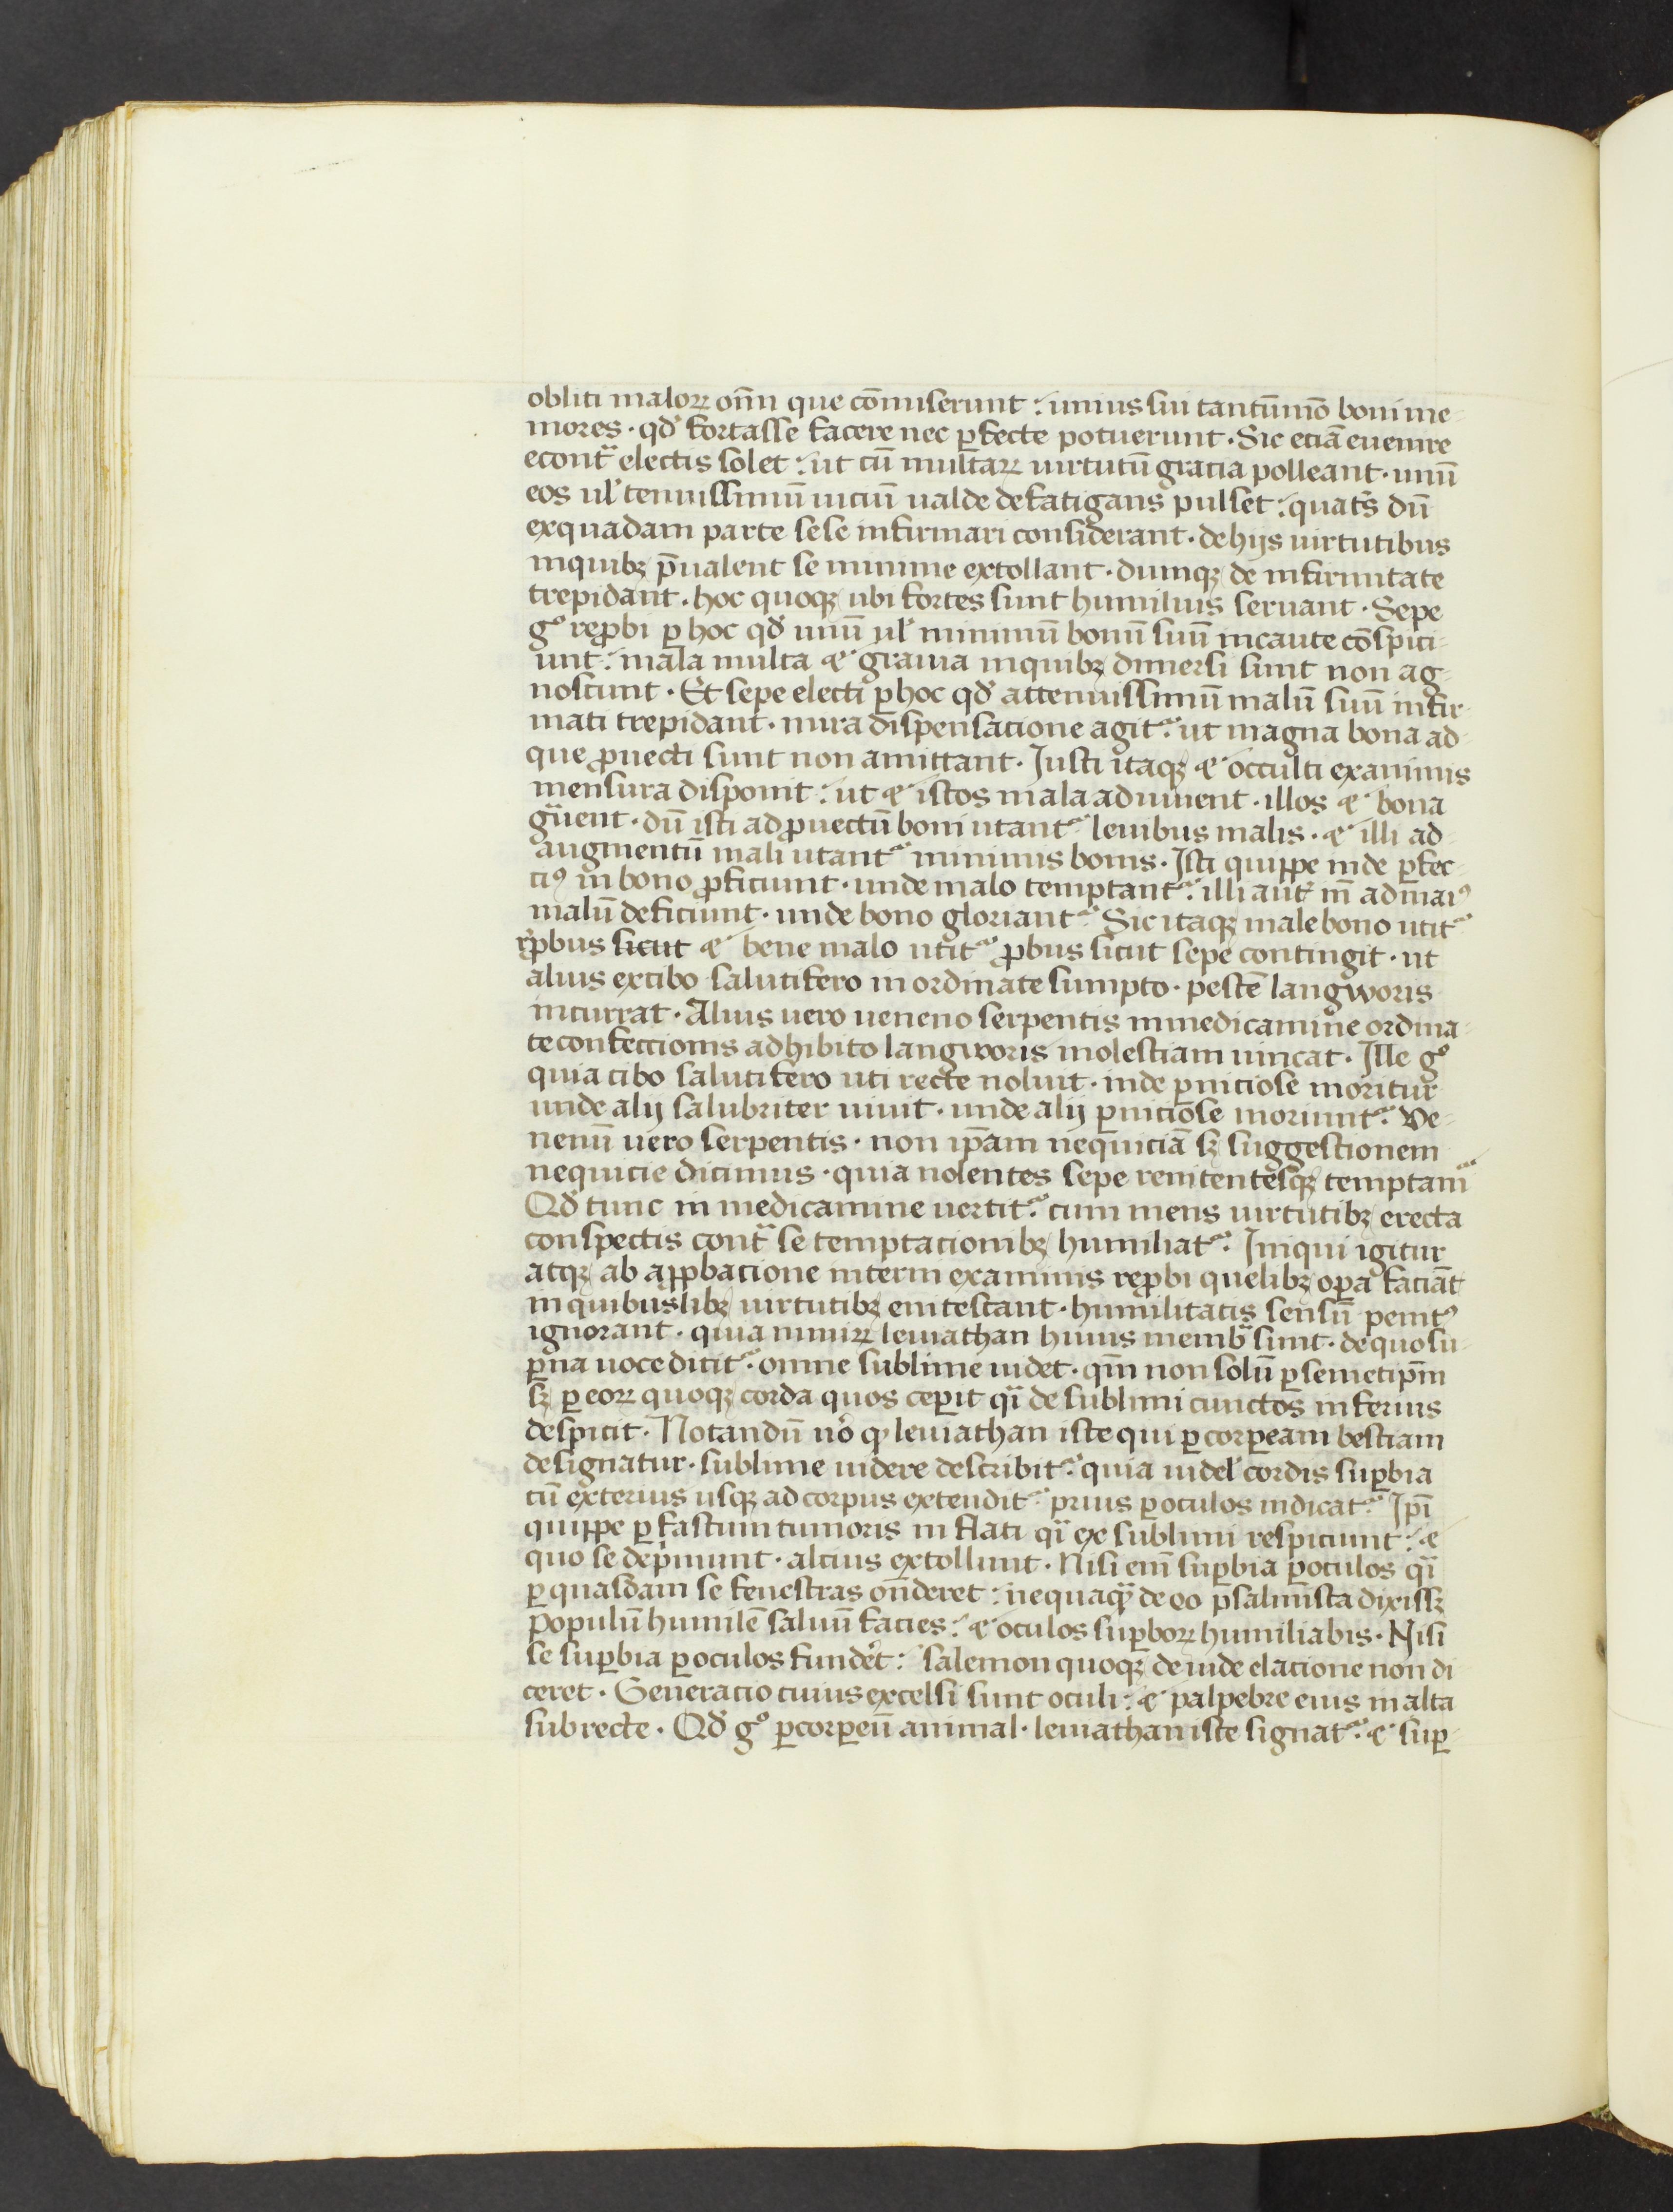 obliti maloꝝ om̄ que cōmiserunt : unius sui tantūmō boni me-
mores · qd̓ fortasse facere nec ꝑfecte potuerunt · Sic etiā euenire
econtᷓ electis solet : ut cū multaꝝ uirtutū gracia polleant · unū
eos ul̓ tenuissimū uiciū ualde defatigans pulset : quat̓s dū
exquadam parte sese infirmari considerant · de hijs uirtutibus
inquibꝫ p̄ualent se minime extollant · dumqꝫ de infirmitate
trepidant · hoc quoqꝫ ubi fortes sunt humilius seruant · Sepe
gͦ reꝓbi ꝑ hoc qd̓ unū ul̓ minimū bonū suū incaute cōspici-
unt : mala multa ⁊ grauia inquibꝫ dimersi sunt non ag-
noscunt · Et sepe electi ꝑ hoc qd̓ attenuissimū malū suū infir-
mati trepidant · mira dispensacione agit᷑ : ut magna bona ad
que ꝓuecti sunt non amittant · Justi itaqꝫ ⁊ occulti examinis
mensura disponit : ut ⁊ istos mala adiuuent · illos ⁊ bona
gᷓuent · dū isti ad ꝓuectū boni utant᷑ leuibus malis · ⁊ illi ad-
augmentū mali utant᷑ minimis bonis · Isti quippe inde ꝑfec-
ciꝰ in bono ꝓficiunt · unde malo temptant᷑ : illi aut̄ in̄ ad maiꝰ
malū deficiunt · unde bono gloriant᷑ Sic itaqꝫ male bono utit᷑
rꝓbus sicut ⁊ bene malo utit᷑ ꝓbus sicut sepe contingit · ut
alius excibo salutifero inordinate sumpto · pestē langworis
incurrat · Alius uero ueneno serpentis inmedicamine ordina-
te confeccionis adhibito langworis molestiam uincat · Ille gͦ
quia cibo salutifero uti recte noluit · inde ꝑniciose moritur
unde alij salubriter uiuit · unde alij ꝑniciose moriunt᷑ · Ve-
nenū uero serpentis · non ip̄am nequiciā sꝫ suggestionem
nequicie dicimus · quia nolentes sepe renitentesqꝫ temptam᷑
Qd̓ tunc in medicamine uertit᷑ : cum mens uirtutibꝫ erecta
conspectis contᷓ se temptacionibꝫ humiliat᷑ · Iniqui igitur
atqꝫ ab apꝓbacione interni examinis reꝓbi quelibꝫ oꝑa faciāt
in quibuslibꝫ uirtutibꝫ enitescant · humilitatis sensū penitꝰ
ignorant · quia nimiꝝ leuiathan huius membᷓ sunt · de quo su-
ꝑna uoce dicit᷑ · omne sublime uidet · qm̄ non solū ꝑ semetip̄m
sꝫ ꝑ eoꝝ quoqꝫ corda quos ceꝑit qᷓi de sublimi cunctos inferius
despicit · Notandū uō ꝙ leuiathan iste qui ꝑ corꝑeam bestiam
designatur · sublime uidere describit᷑ : quia uidel̓ cordis suꝑbia
cū exterius usqꝫ ad corpus extendit᷑ prius ꝑ oculos indicat᷑ · Ip̄i
quippe ꝑ fastum tumoris inflati qᷓi ex sublimi respiciunt : ⁊
quo se dep̓munt · alcius extollunt · Nisi eni̅ suꝑbia ꝑ oculos qᷓi
ꝑ quasdam se fenestras on̄deret : nequaqᷓ de eo psalmista dixissꝫ
Populū humilē saluū facies : ⁊ oculos suꝑboꝝ humiliabis · Nisi
se suꝑbia ꝑ oculos fund̓et : salemon quoqꝫ de iude elacione non di
ceret · Generacio cuius excelsi sunt oculi : ⁊ palpebre eius in alta
subrecte · Qd̓ gͦ ꝑ corꝑeū animal · leuiathan iste signat᷑ : ⁊ suꝑ-